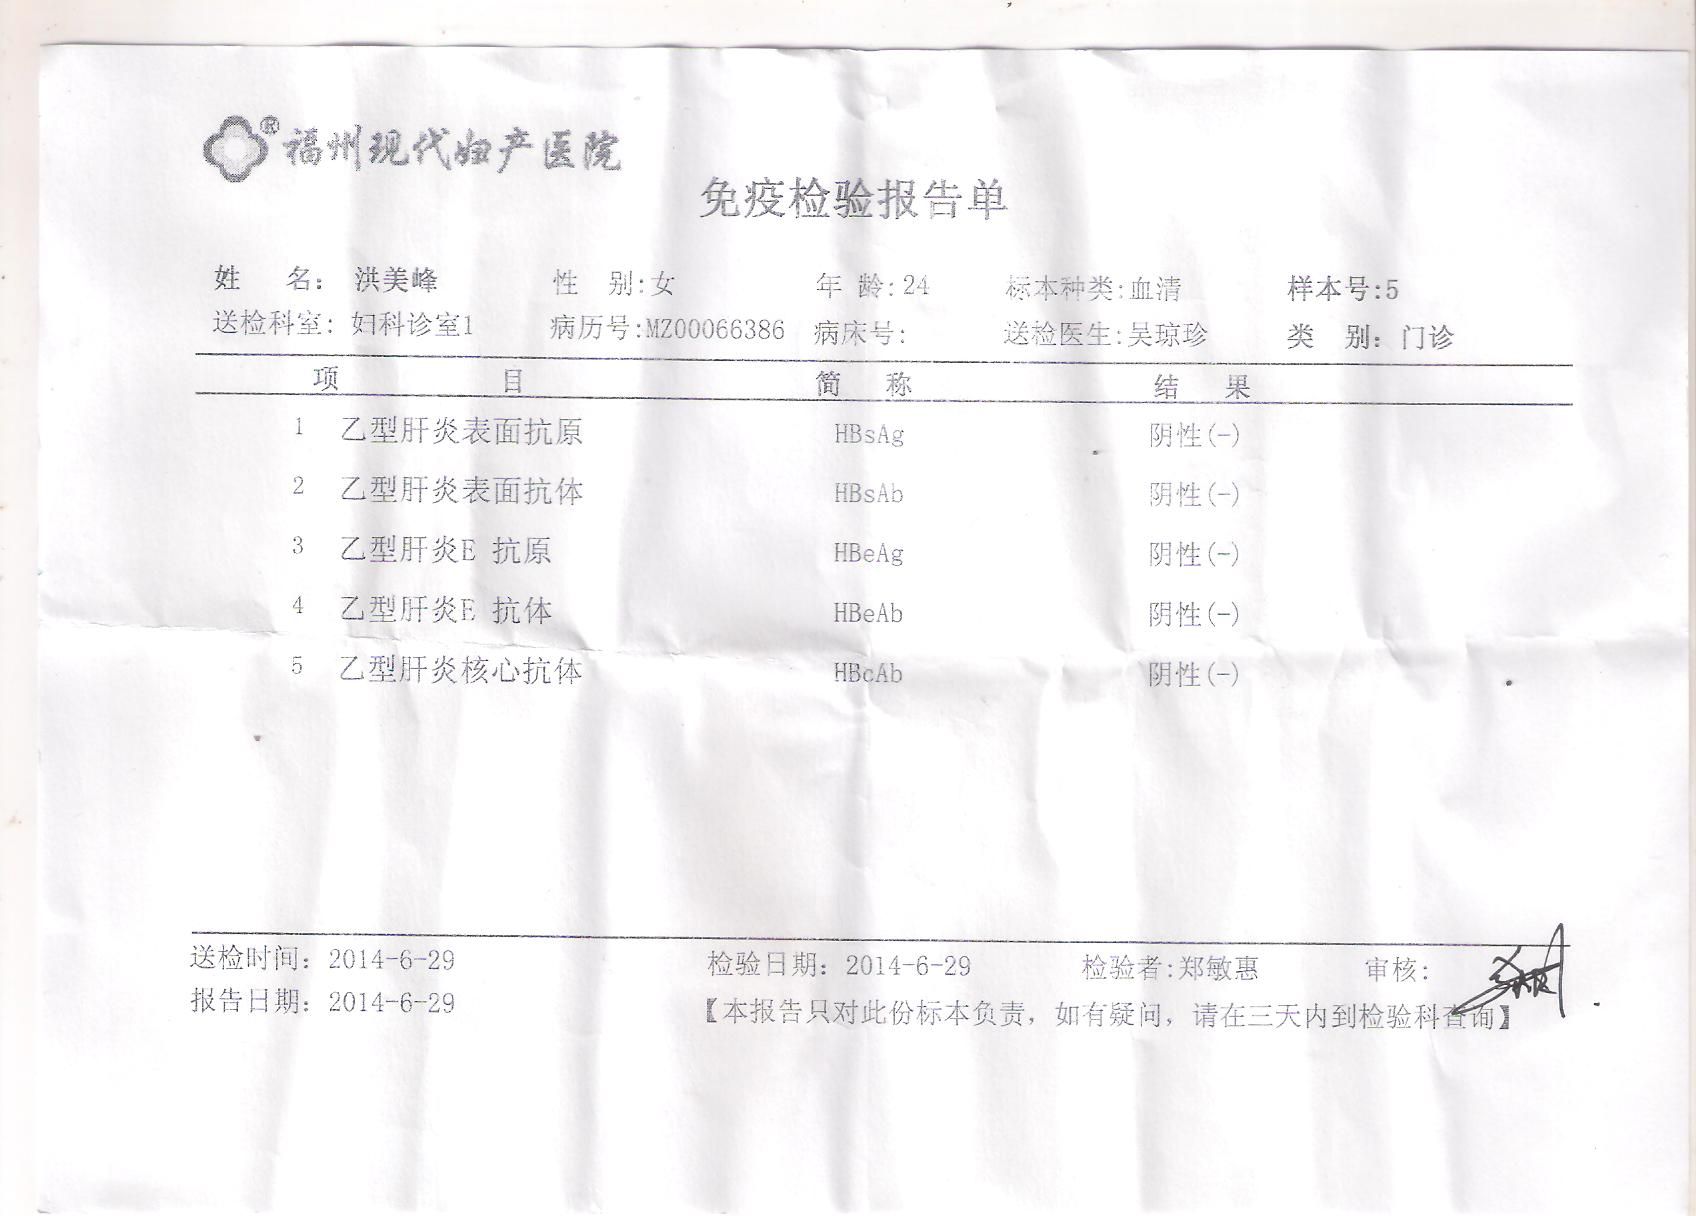 ®福州现代妇产医院
免疫检验报告单
姓 名: 洪美峰 性 别:女 年 龄:24 标本种类:血清 样本号:5
送检科室: 妇科诊室1 病历号:MZ00066386 病床号: 送检医生:吴琼珍 类 别: 门诊
项 目 简 称 结 果
1 乙型肝炎表面抗原 HBsAg 阴性(-)
2 乙型肝炎表面抗体 HBsAb 阴性(-)
3 乙型肝炎E 抗原 HBeAg 阴性(-)
4 乙型肝炎E 抗体 HBeAb 阴性(-)
5 乙型肝炎核心抗体 HBcAb 阴性(-)
送检时间: 2014-6-29 检验日期: 2014-6-29 检验者:郑敏惠 审核:
报告日期: 2014-6-29 【本报告只对此份标本负责，如有疑问，请在三天内到检验科查询】